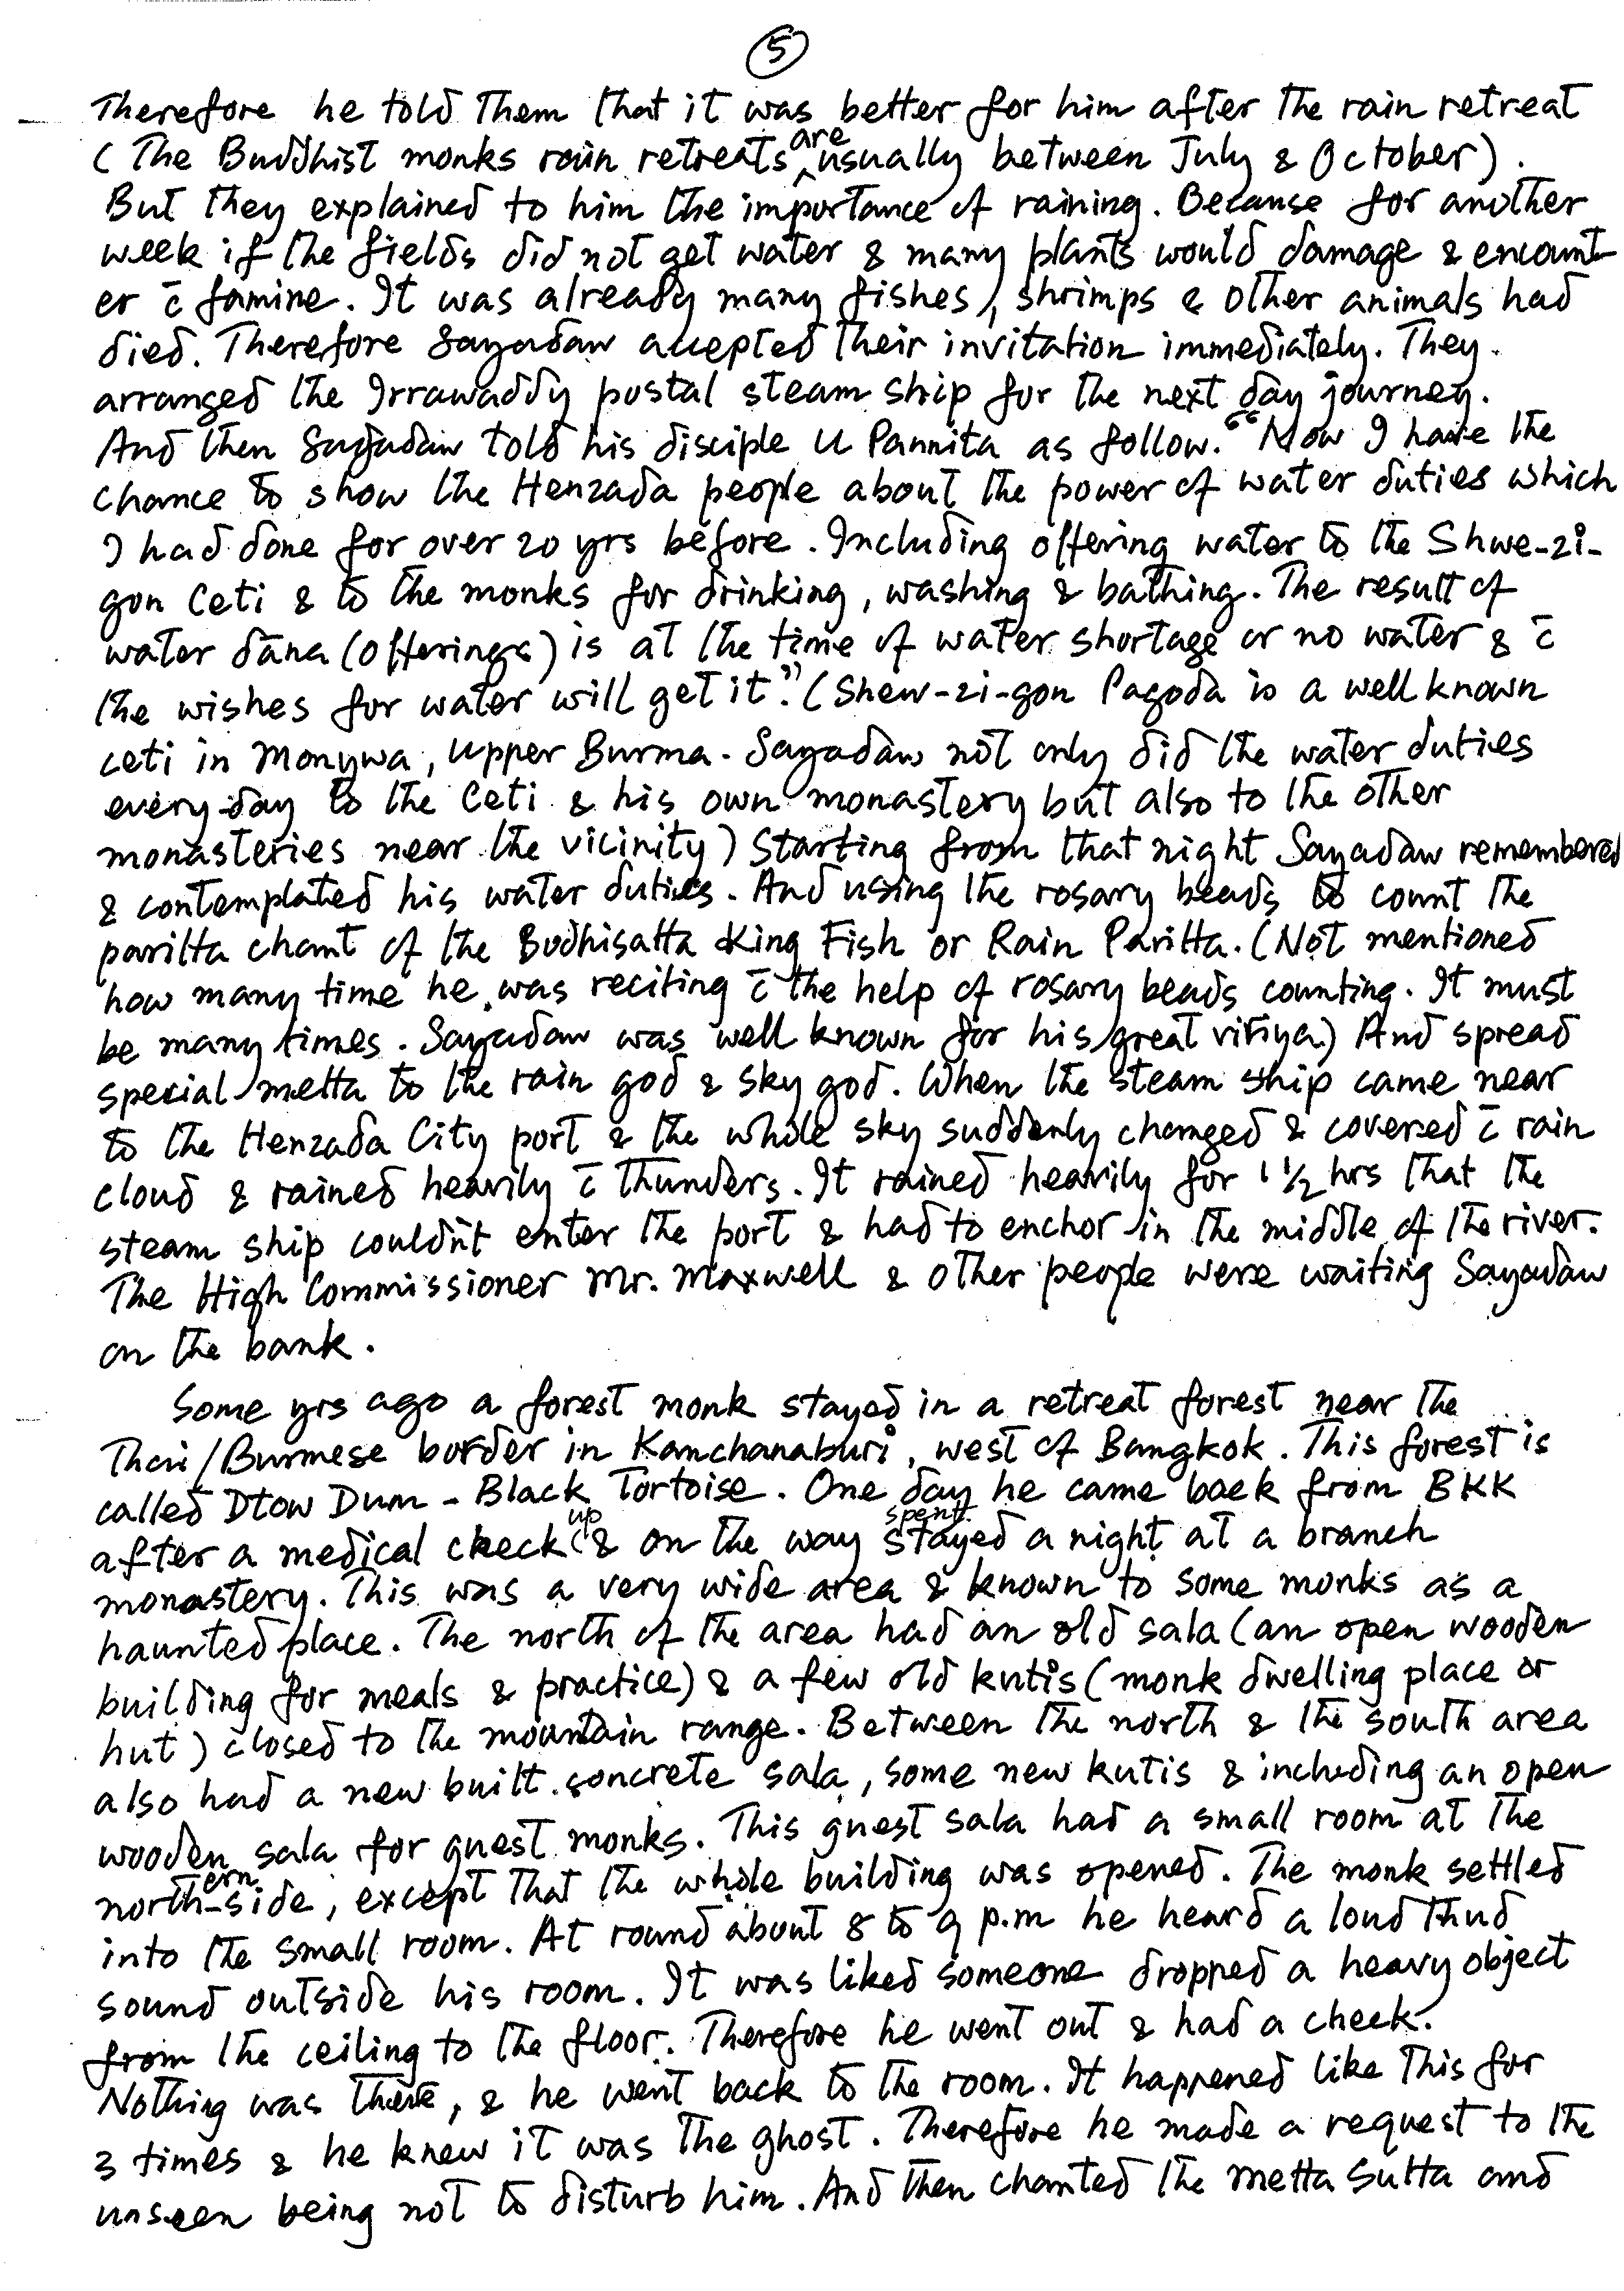 5
Therefore he told them that it was better for him after the rain retreat
(The Buddhist monks rain retreats are usually between July & October).
But they explained to him the importance of raining. Because for another
week if the fields did not get water & many plants would damage & encount-
er c̄ famine. It was already many fishes, shrimps & other animals had
died. Therefore Sayadaw accepted their invitation immediately. They
arranged the Irrawaddy postal steam ship for the next day journey.
And then Sayadaw told his disciple U Pannita as follow. "Now I have the
chance to show the Henzada people about the power of water duties which
I had done for over 20 yrs before. Including offering water to the Shwe-zi-
gon Ceti & to the monks for drinking, washing & bathing. The result of
water dāna (offerings) is at the time of water shortage or no water & c̄
the wishes for water will get it." (Shew-zi-gon Pagoda is a well known
ceti in Monywa, Upper Burma. Sayadaw not only did the water duties
every-day to the Ceti & his own monastery but also to the other
monasteries near the vicinity) Starting from that night Sayadaw remembered
& contemplated his water duties. And using the rosary beads to count the
paritta chant of the Bodhisatta King Fish or Rain Paritta. (Not mentioned
how many time he was reciting c̄ the help of rosary beads counting. It must
be many times. Sayadaw was well known for his great viriya.) And spread
special metta to the rain god & sky god. When the steam ship came near
to the Henzada City port & the whole sky suddenly changed & covered c̄ rain
cloud & rained heavily c̄ thunders. It rained heavily for 1 ½ hrs that the
steam ship couldn't enter the port & had to enchor in the middle of the river.
The High Commissioner Mr. Maxwell & other people were waiting Sayadaw
on the bank.
Some yrs ago a forest monk stayed in a retreat forest near the
Thai/Burmese border in Kanchanaburi, west of Bangkok. This forest is
called Dtow Dum - Black Tortoise. One day he came back from BKK
after a medical check up & on the way spent stayed a night at a branch
monastery. This was a very wide area & known to some monks as a
haunted place. The north of the area had an old sala (an open wooden
building for meals & practice) & a few old kutis (monk dwelling place or
hut) closed to the mountain range. Between the north & the south area
also had a new built concrete sala, some new kutis & including an open
wooden sala for guest monks. This guest sala had a small room at the
northern-side, except that the whole building was opened. The monk settled
into the small room. At round about 8 to 9 p.m he heard a loud thud
sound outside his room. It was liked someone dropped a heavy object
from the ceiling to the floor. Therefore he went out & had a check.
Nothing was there, & he went back to the room. It happened like this for
3 times & he knew it was the ghost. Therefore he made a request to the
unseen being not to disturb him. And then chanted the Metta Sutta and